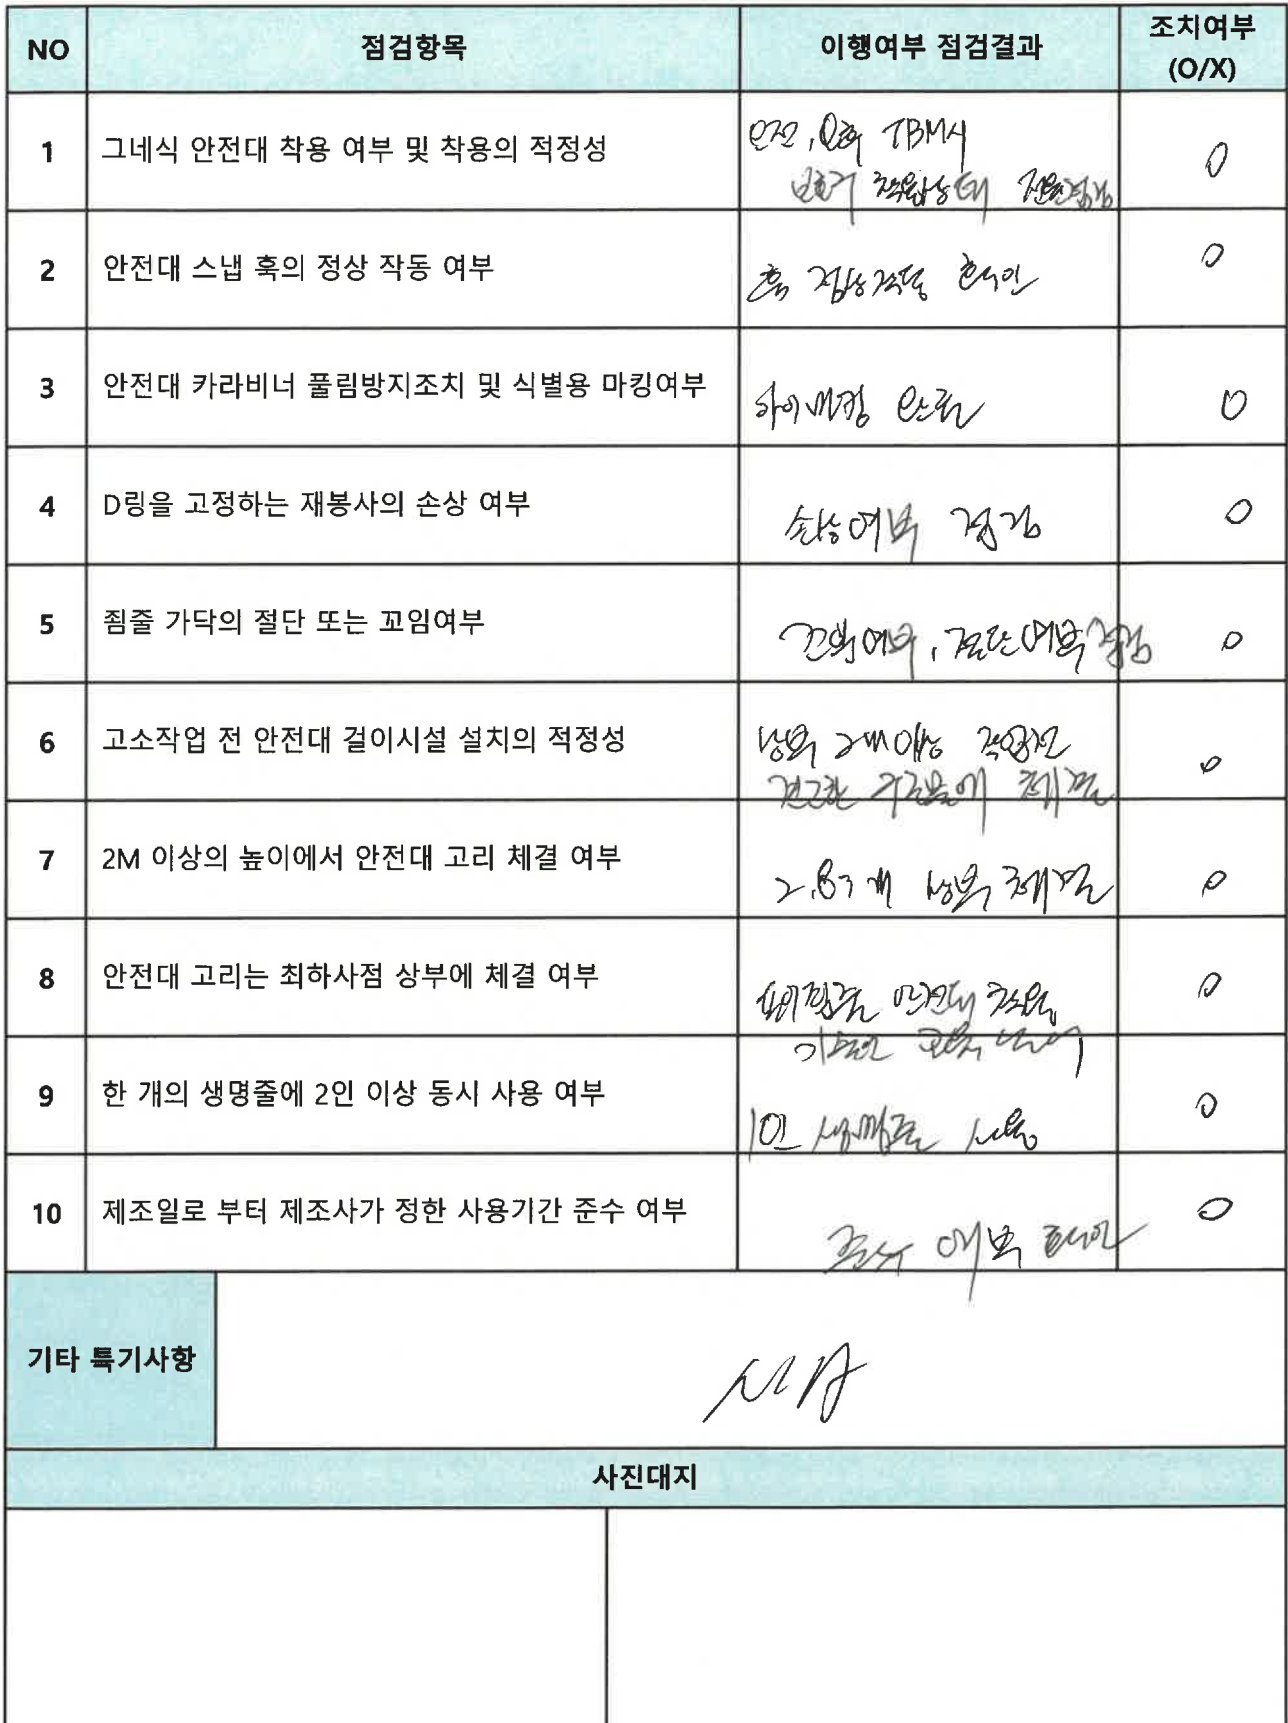 NO 점검항목 이행여부 점검결과 조치여부
(O/X)
1 그네식 안전대 착용 여부 및 착용의 적정성 오전, 오후 TBM시 O
보호구 착용상태 점검
2 안전대 스냅 훅의 정상 작동 여부 훅 정상작동 확인 O
3 안전대 카라비너 풀림방지조치 및 식별용 마킹여부 마킹 완료 O
4 D링을 고정하는 재봉사의 손상 여부 손상여부 점검 O
5 죔줄 가닥의 절단 또는 꼬임여부 여부, 절단여부 점검 O
6 고소작업 전 안전대 걸이시설 설치의 적정성 상부 2m이상 작업전 O
견고한 구조물에 체결
7 2M 이상의 높이에서 안전대 고리 체결 여부 상부 체결 O
8 안전대 고리는 최하사점 상부에 체결 여부 안전대 착용 O
9 한 개의 생명줄에 2인 이상 동시 사용 여부 1인 생명줄 사용 O
10 제조일로 부터 제조사가 정한 사용기간 준수 여부 준수 여부 확인 O
기타 특기사항
사진대지